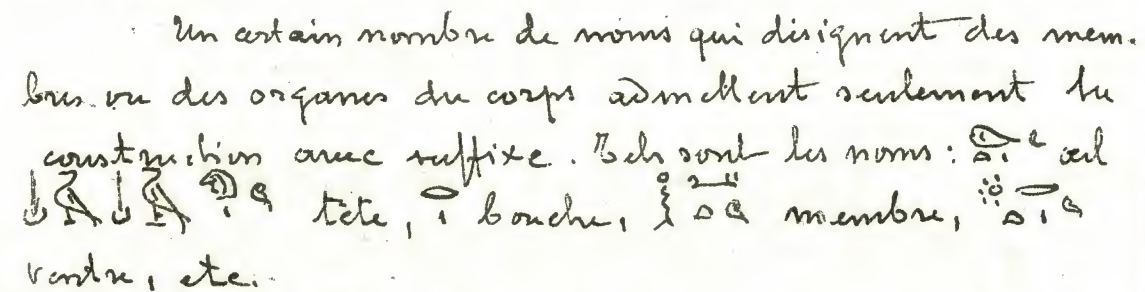 Un certain nombre de noms qui désignent des mem-
bres ou des organes du corps admettent seulement la
construction avec suffixe. Tels sont les noms : œil
tête, bouche, membre,
ventre, etc.